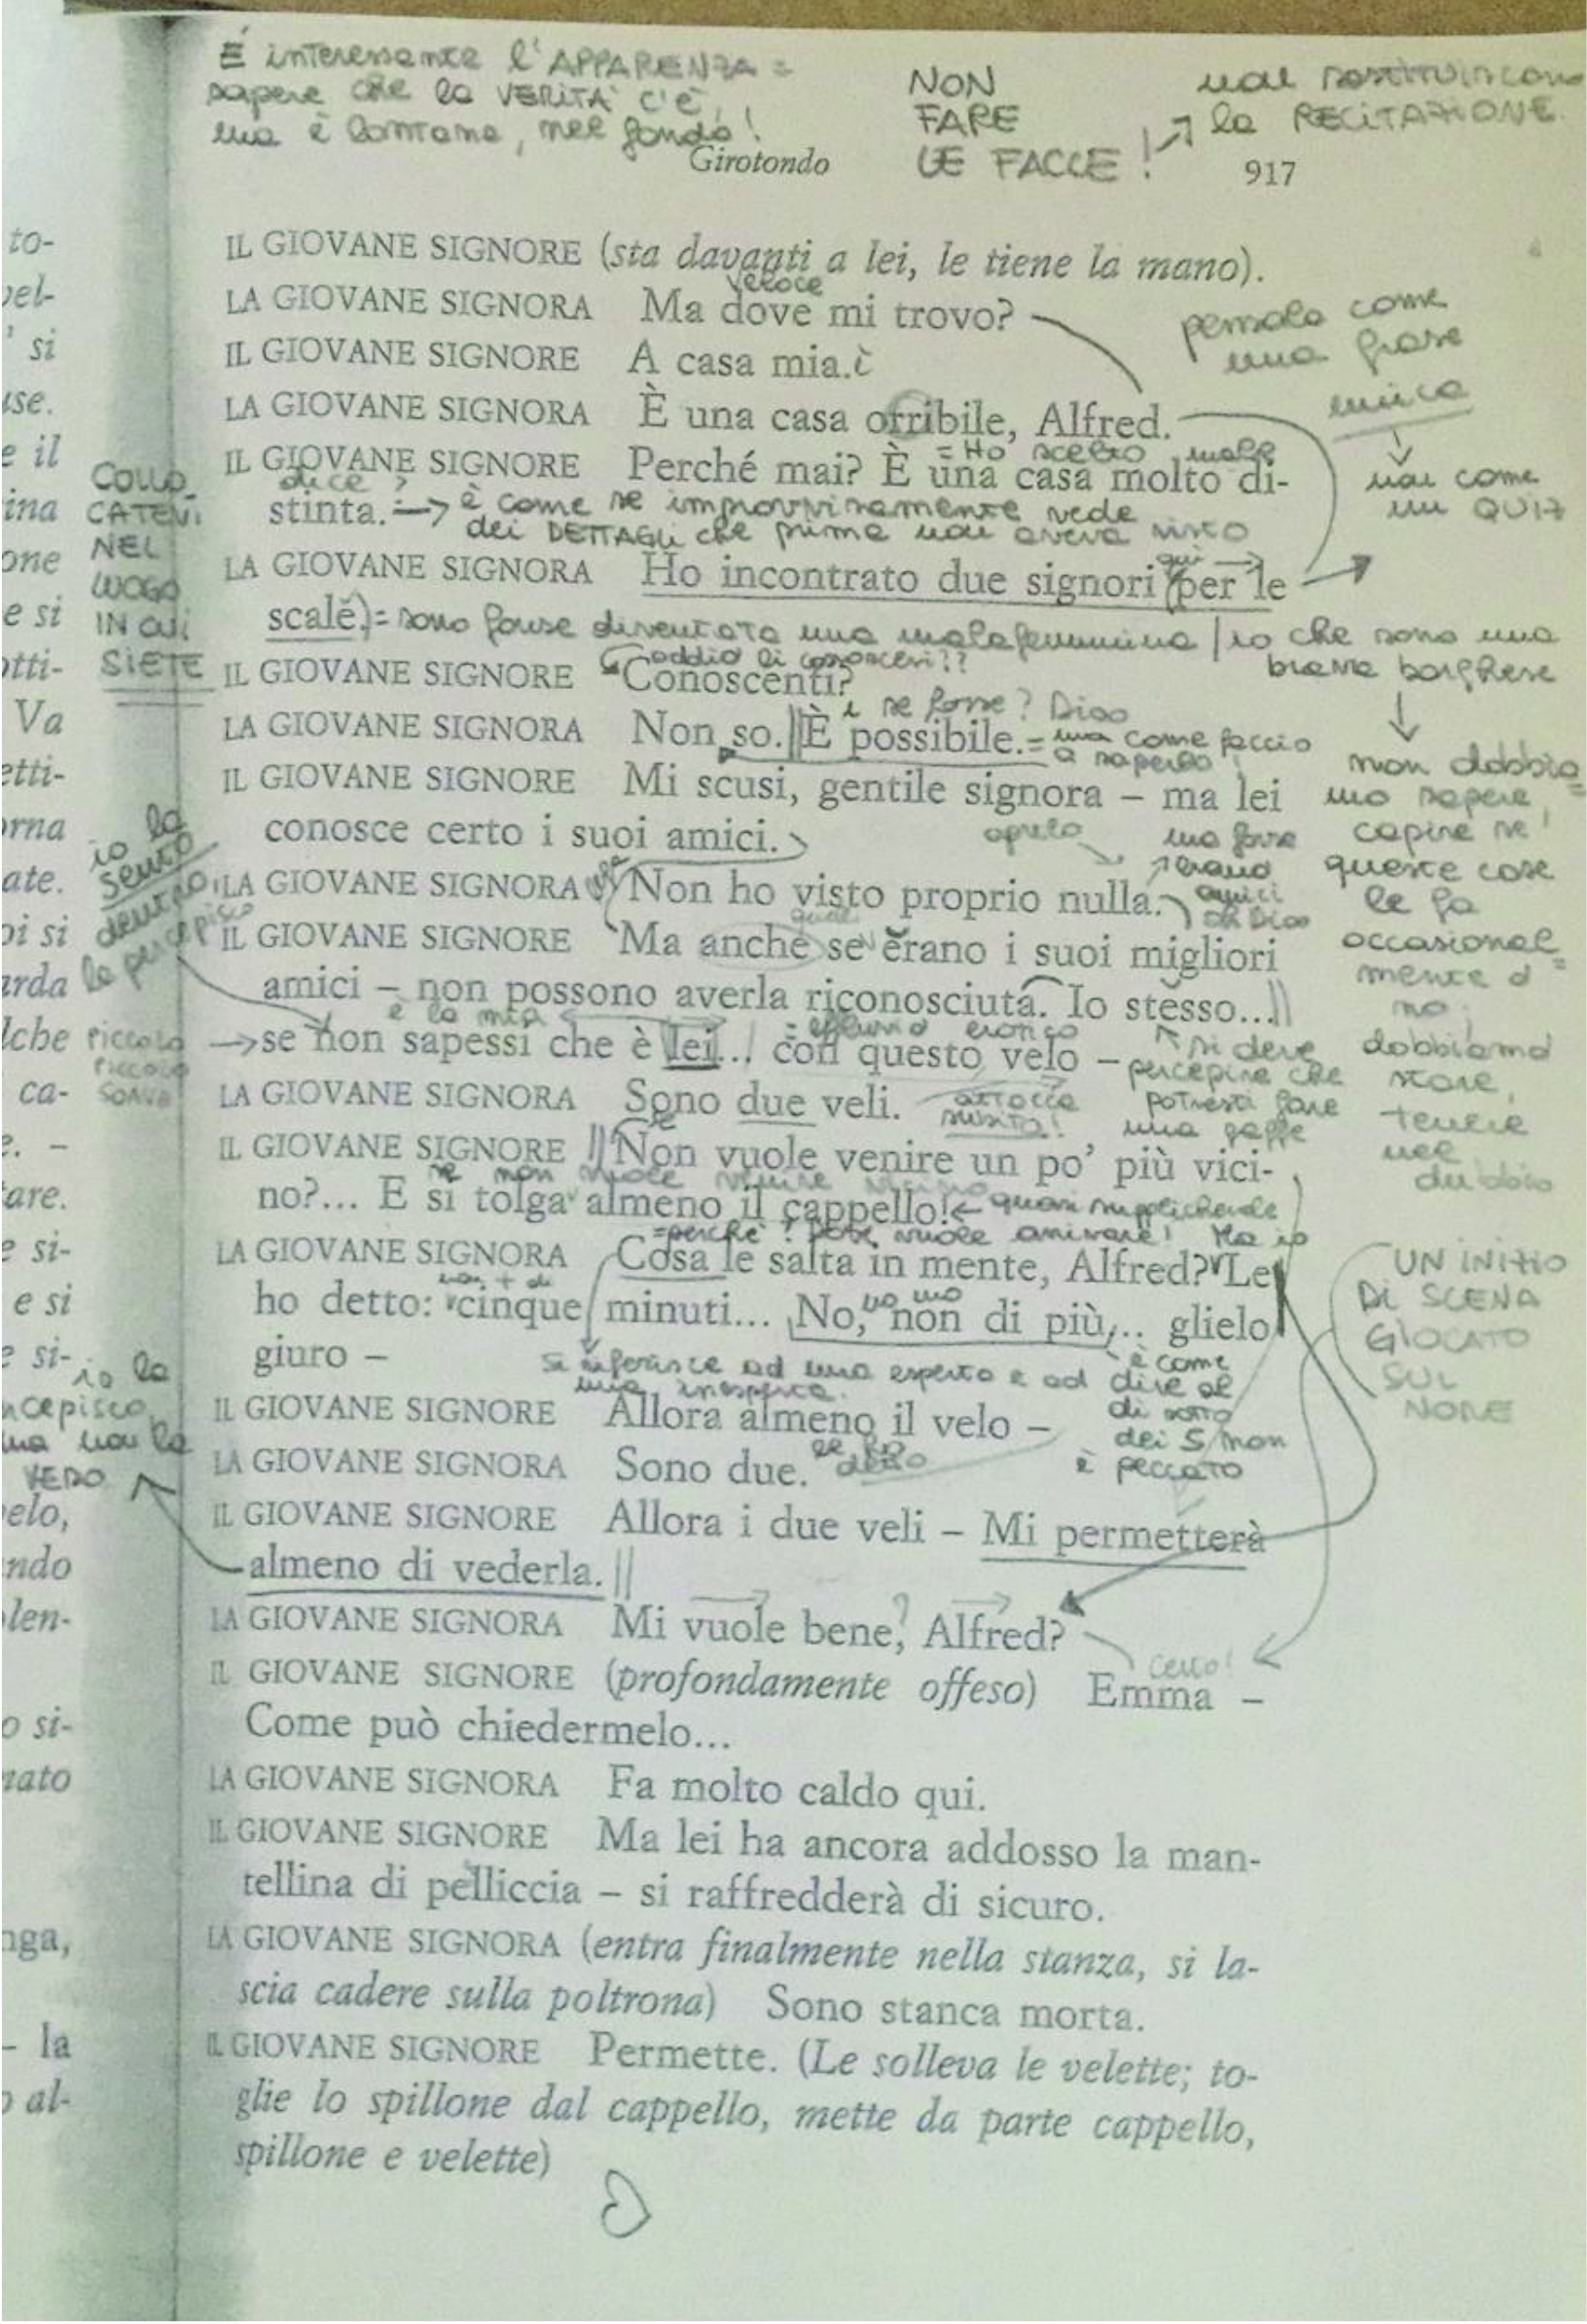 È interessante l'APPARENZA =
sapere che la VERITÀ c'è,
ma è lontana, nel fondo!
NON
FARE
LE FACCE!
non sostituiscono
la RECITAZIONE.
Girotondo
917
IL GIOVANE SIGNORE (sta davanti a lei, le tiene la mano).
veloce
LA GIOVANE SIGNORA Ma dove mi trovo?
IL GIOVANE SIGNORE A casa mia.
LA GIOVANE SIGNORA È una casa orribile, Alfred.
pensala come
una frase
unica
non come
un QUIZ
= Ho scelto male
IL GIOVANE SIGNORE Perché mai? È una casa molto di-
dice?
stinta. → è come se improvvisamente vede
dei DETTAGLI che prima non aveva visto
COLLO-
CATEVI
NEL
LUOGO
IN CUI
SIETE
qui
LA GIOVANE SIGNORA Ho incontrato due signori (per le
scale.) = sono forse diventata una malafemmina / io che sono una
brava borghese
oddio li conoscevi??
IL GIOVANE SIGNORE Conoscenti?
e se fosse? Dico
LA GIOVANE SIGNORA Non so. || È possibile. = ma come faccio
a saperlo!
IL GIOVANE SIGNORE Mi scusi, gentile signora – ma lei
conosce certo i suoi amici.
aprelo
ma forse
erano
amici
oh Dio
LA GIOVANE SIGNORA Non ho visto proprio nulla.
IL GIOVANE SIGNORE Ma anche se erano i suoi migliori
amici – non possono averla riconosciuta. Io stesso... ||
è la mia
= effluvio erotico
se non sapessi che è lei... / con questo velo –
si deve
percepire che
potresti fare
una gaffe
non dobbia=
mo sapere,
capire se
queste cose
le fa
occasional=
mente o
no.
dobbiamo
stare,
tenere
nel
dubbio
io la
sento
dentro,
la percepisco
piccola
piccola
LA GIOVANE SIGNORA Sono due veli.
attacca
subito!
IL GIOVANE SIGNORE || Non vuole venire un po' più vici-
se non vuole venire vicino
no?... E si tolga almeno il cappello! ← quasi supplichevole
= perché? Dove vuole arrivare! Ma io
LA GIOVANE SIGNORA Cosa le salta in mente, Alfred? Le
non + di
no no
ho detto: cinque minuti... No, non di più... glielo
giuro –
Si riferisce ad una esperta e ad
una inesperta.
è come
dire al
di sotto
dei 5 non
è peccato
UN INIZIO
DI SCENA
GIOCATO
SUL
NO
io la
percepisco,
ma non la
VEDO
IL GIOVANE SIGNORE Allora almeno il velo –
LA GIOVANE SIGNORA Sono due.
le ho
detto
IL GIOVANE SIGNORE Allora i due veli – Mi permetterà
almeno di vederla. ||
LA GIOVANE SIGNORA Mi vuole bene, Alfred?
Certo!
IL GIOVANE SIGNORE (profondamente offeso) Emma –
Come può chiedermelo...
LA GIOVANE SIGNORA Fa molto caldo qui.
IL GIOVANE SIGNORE Ma lei ha ancora addosso la man-
tellina di pelliccia – si raffredderà di sicuro.
LA GIOVANE SIGNORA (entra finalmente nella stanza, si la-
scia cadere sulla poltrona) Sono stanca morta.
IL GIOVANE SIGNORE Permette. (Le solleva le velette; to-
glie lo spillone dal cappello, mette da parte cappello,
spillone e velette)